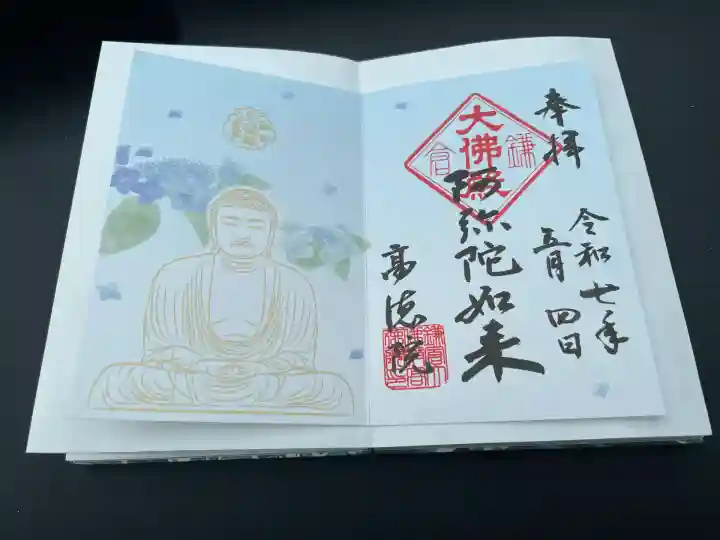 奉拝
令和七年
五月四日
大佛殿
鎌倉
阿弥陀如来
高徳院